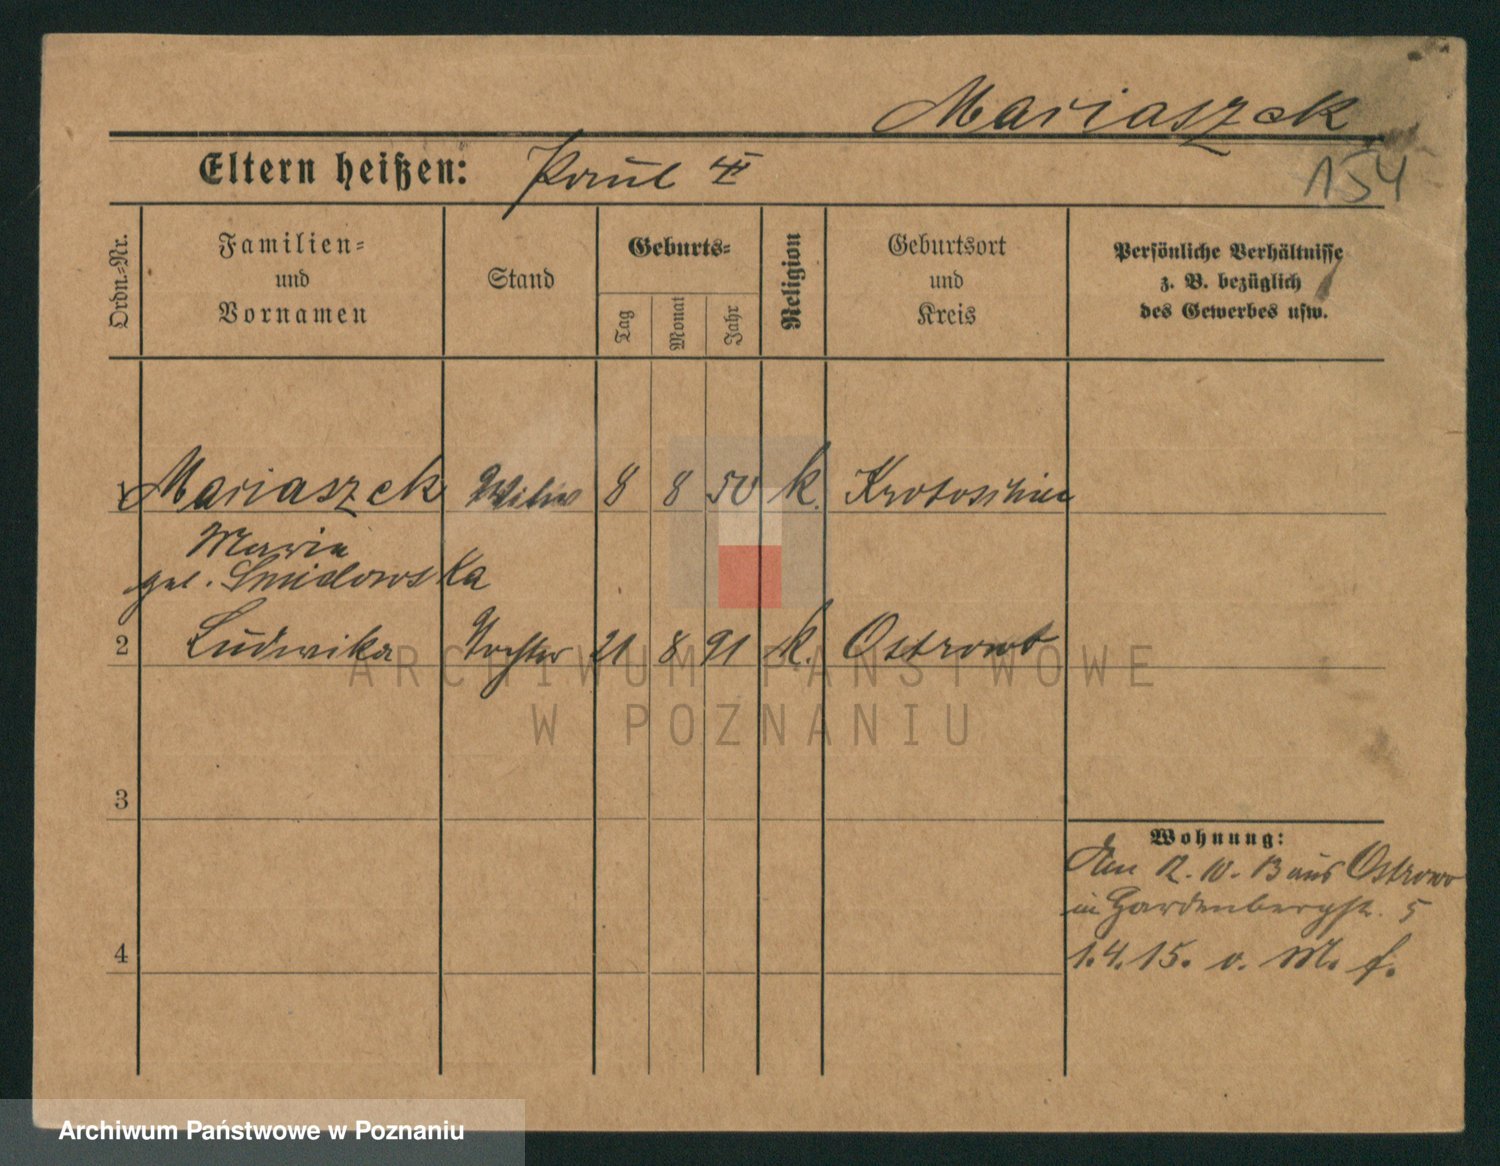 Mariaszek
Eltern heißen: Paul
154
Ordn.=Nr.
Familien=
und
Vornamen
Stand
Geburts=
Tag
Monat
Jahr
Religion
Geburtsort
und
Kreis
Persönliche Verhältnisse
z. B. bezüglich
des Gewerbes usw.
1 Mariaszek 8 8 50 k. Krotoschin
Maria
geb. Smidowska
2 Ludwika Tochter 21 8 91 k. Ostrowo
3
Wohnung:
Am 12. 10. 13 aus Ostrowo
in Gardenbergstr. 5
4
1.4.15. v. M. f.
ARCHIWUM PAŃSTWOWE
W POZNANIU
Archiwum Państwowe w Poznaniu